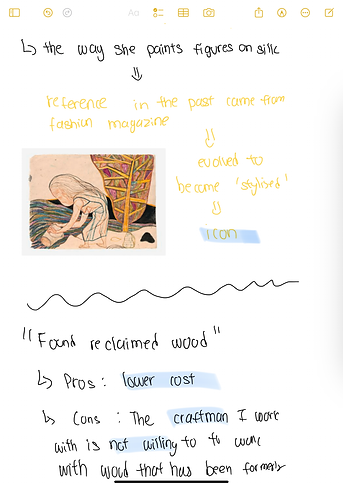 ↳ the way she paints figures on silk
⇓
reference in the past came from
fashion magazine
⇓
evolved to
become 'stylised'
⇓
icon
"Found reclaimed wood"
↳ Pros : lower cost
↳ Cons : The craftman I work
with is not willing to to work
with wood that has been formerly